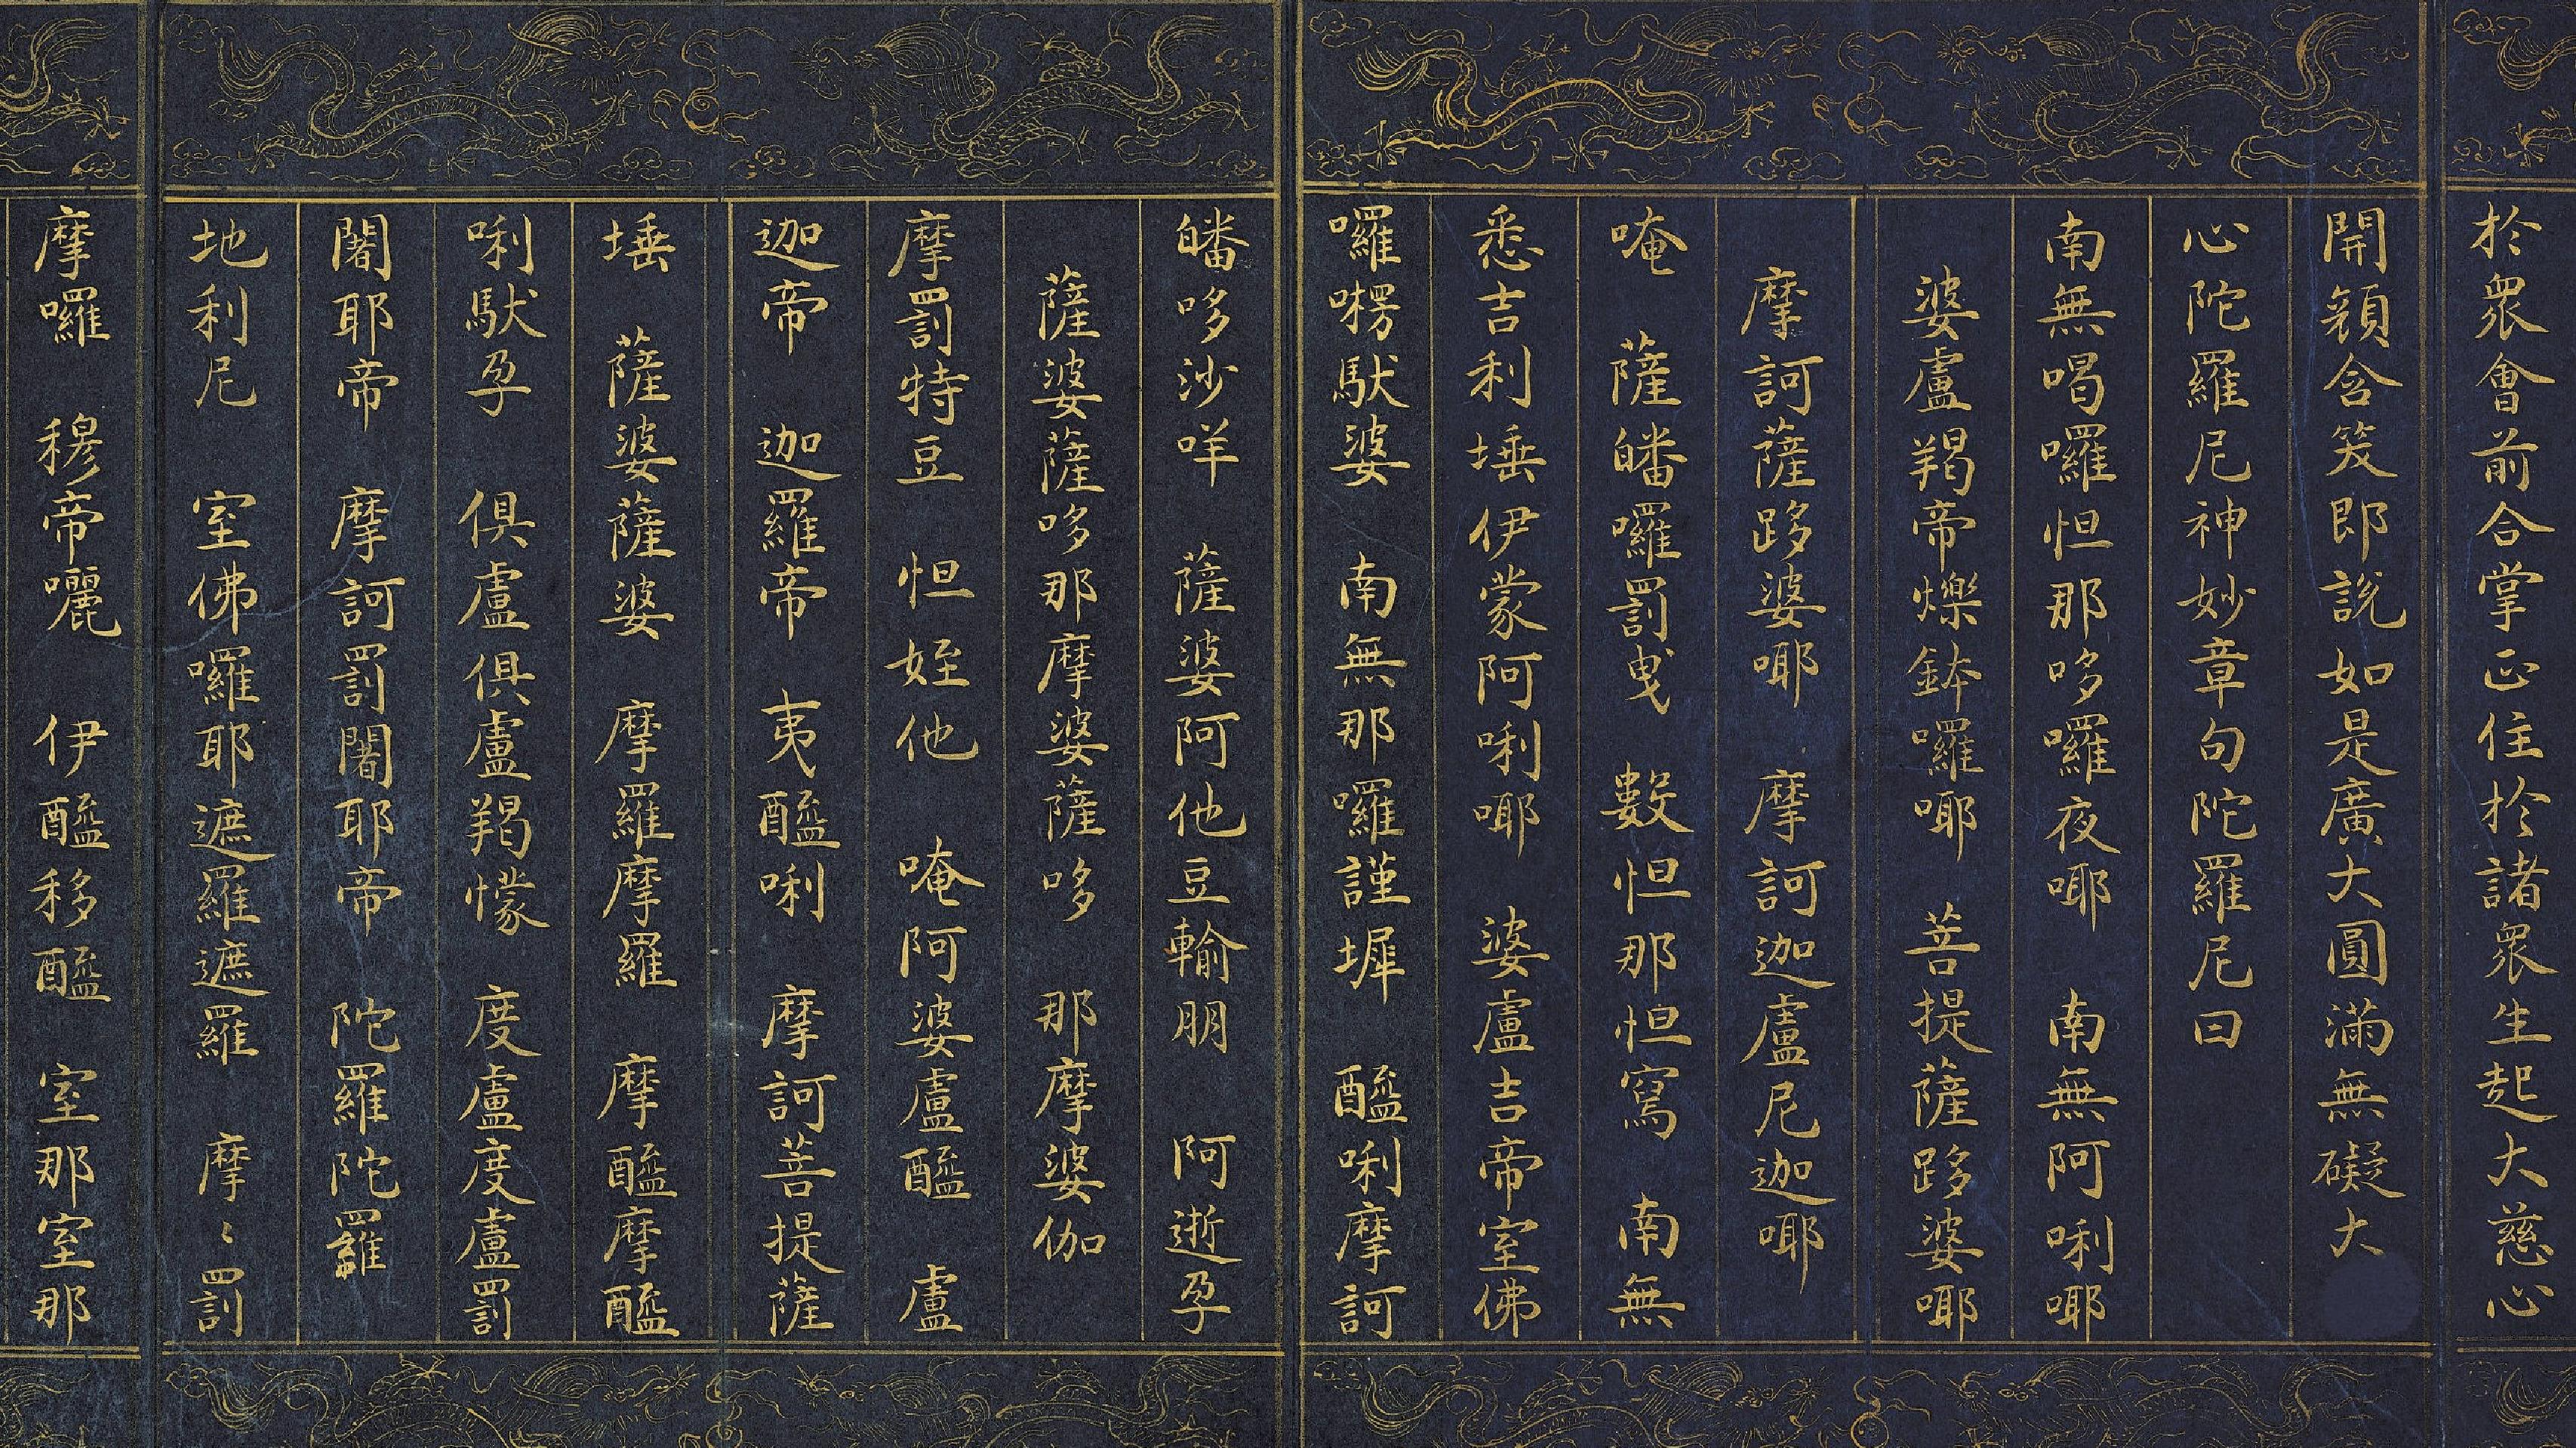 於眾會前合掌正住於諸眾生起大慈心
開顏含笑即說如是廣大圓滿無礙大
心陀羅尼神妙章句陀羅尼曰
南無喝囉怛那哆囉夜耶　南無阿唎耶
婆盧羯帝爍鉢囉耶　菩提薩跢婆耶
摩訶薩跢婆耶　摩訶迦盧尼迦耶
唵　薩皤囉罰曳　數怛那怛寫　南無
悉吉利埵伊蒙阿唎耶　婆盧吉帝室佛
囉楞馱婆　南無那囉謹墀　醯唎摩訶
皤哆沙咩　薩婆阿他豆輸朋　阿逝孕
薩婆薩哆那摩婆薩哆　那摩婆伽
摩罰特豆　怛姪他　唵阿婆盧醯　盧
迦帝　迦羅帝　夷醯唎　摩訶菩提薩
埵　薩婆薩婆　摩羅摩羅　摩醯摩醯
唎馱孕　俱盧俱盧羯懞　度盧度盧罰
闍耶帝　摩訶罰闍耶帝　陀羅陀羅
地利尼　室佛囉耶遮羅遮羅　摩〻罰
摩囉　穆帝囇　伊醯移醯　室那室那